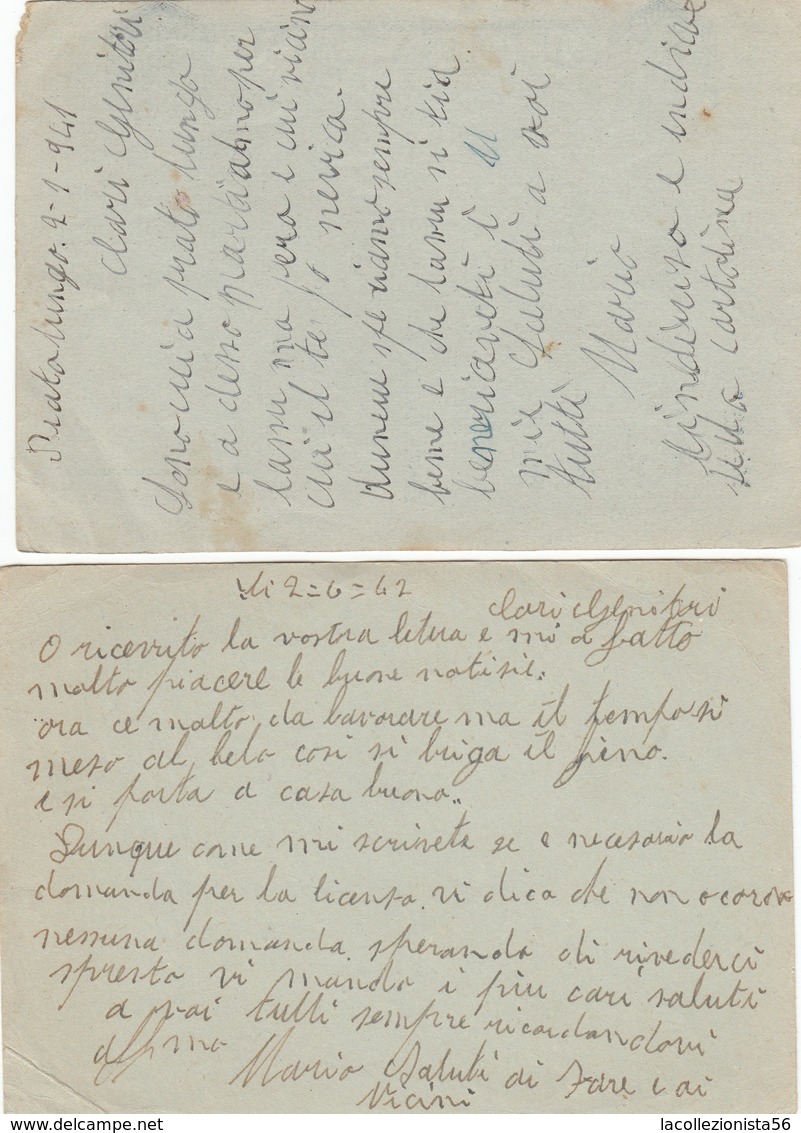 Prato lungo. 2-1-941
Cari Genitori
Sono cui a prato lungo
e a desso partiamo per
lamu ma pero e cui vicino
cui il te po nevica.
duncue speriamo sempre
bene e che lanu si tia
beneriaveti i
mie Saluti a voi
tutti Mario
lindiriso e indicae
sula cartolina
li 2=6=42
Cari Genitori
O ricevuto la vostra letera e mi a fatto
molto piacere le buone notisie.
ora ce molto da lavorare ma il tempo si
meso al belo cosi si briga il fieno.
e si porta a casa buono..
Dunque come mi scrivete se e necesario la
domanda per la licensa. vi dico che non ocore
nessuna domanda. sperando di rivederci
spresto vi mando i piu cari saluti
a voi tutti sempre ricordandovi
aff mo
Mario Saluti ai Zare e ai
Vicini
lacollezionista56